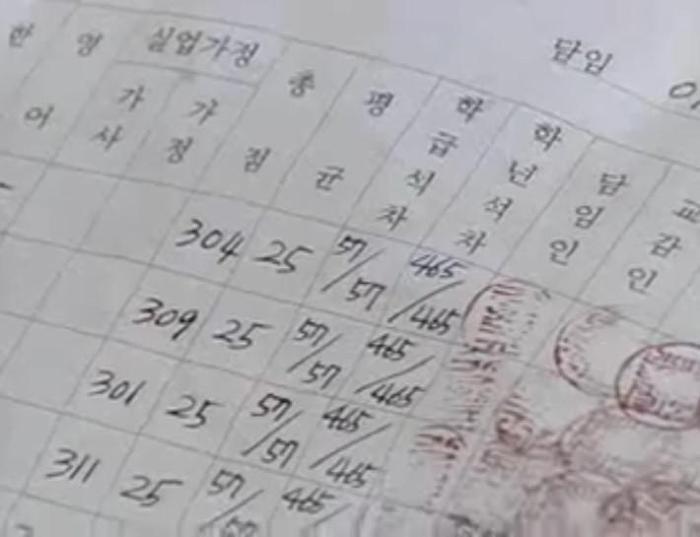 담임
한 영 실업가정 총 평 학 학
어 가 가 점 균 급 년 담 교
사 정 석 석 임 감
차 차 인 인
304 25 57/57 465/465
309 25 57/57 465/465
301 25 57/57 465/465
311 25 57/57 465/